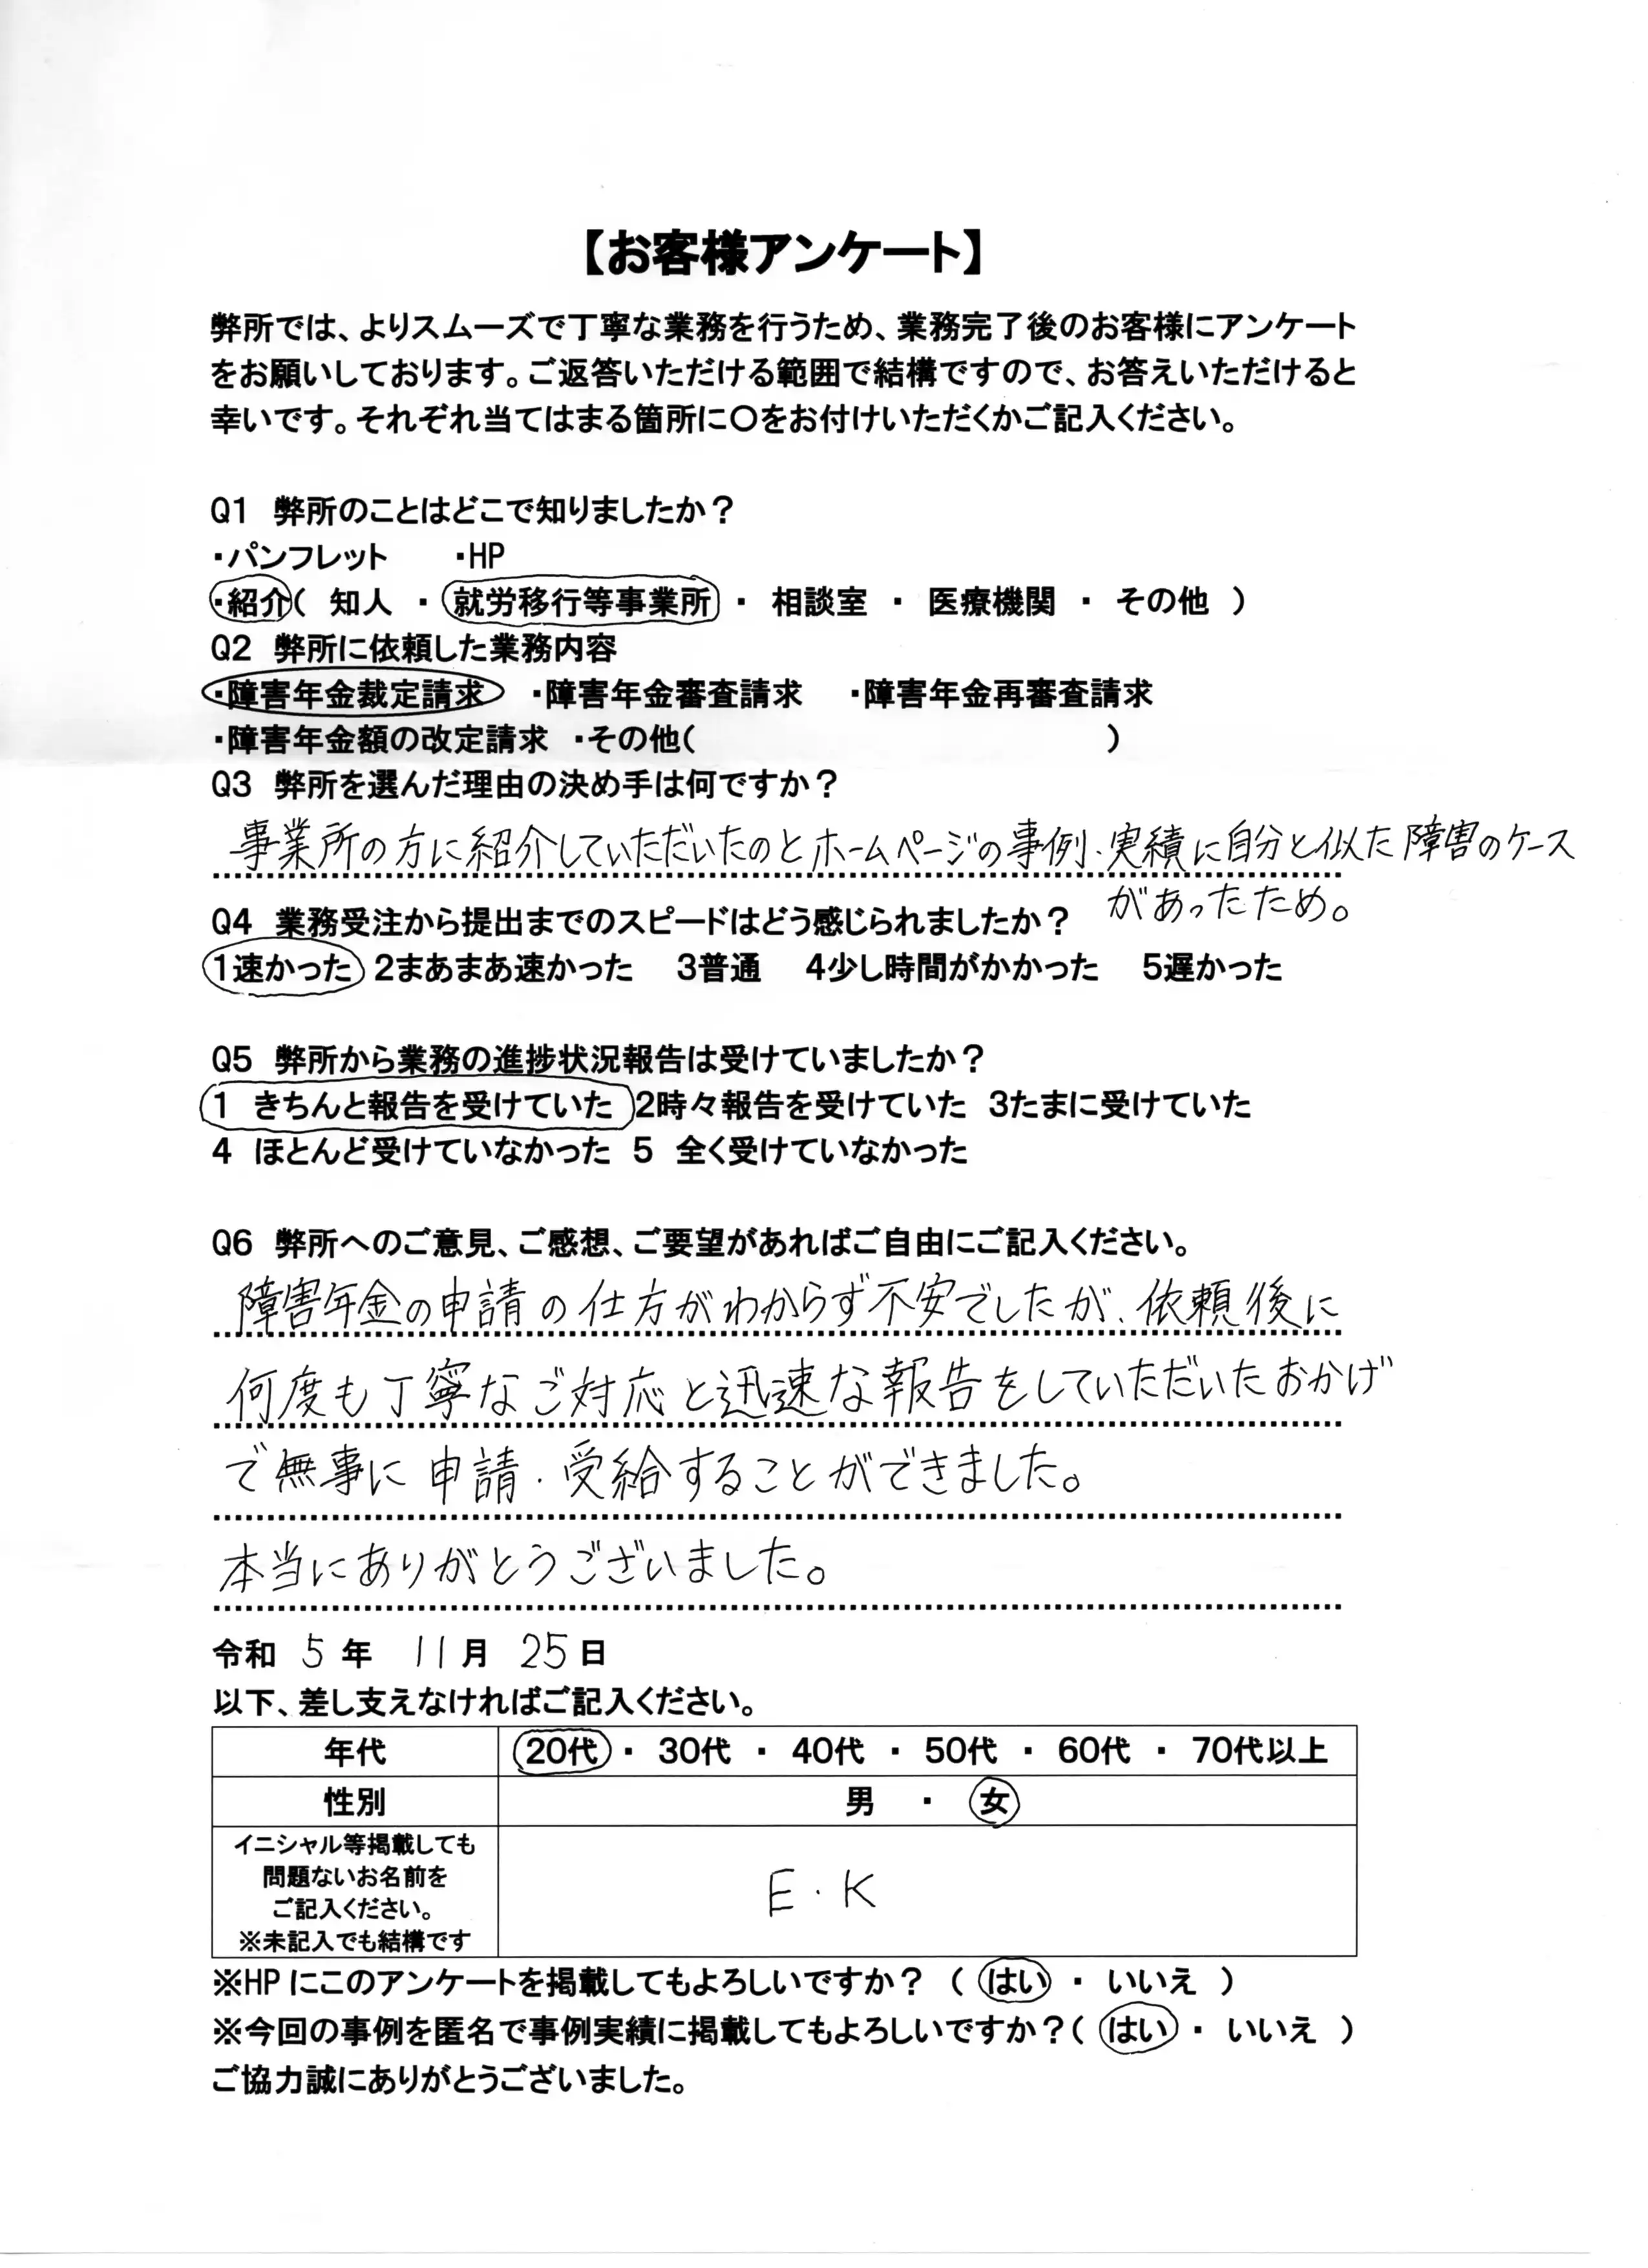 【お客様アンケート】
弊所では、よりスムーズで丁寧な業務を行うため、業務完了後のお客様にアンケート
をお願いしております。ご返答いただける範囲で結構ですので、お答えいただけると
幸いです。それぞれ当てはまる箇所に〇をお付けいただくかご記入ください。
Q1 弊所のことはどこで知りましたか？
・パンフレット ・HP
・紹介（ 知人 ・ 就労移行等事業所 ・ 相談室 ・ 医療機関 ・ その他 ）
Q2 弊所に依頼した業務内容
・障害年金裁定請求 ・障害年金審査請求 ・障害年金再審査請求
・障害年金額の改定請求 ・その他（ ）
Q3 弊所を選んだ理由の決め手は何ですか？
事業所の方に紹介していただいたのとホームページの事例、実績に自分と似た障害のケース
があったため。
Q4 業務受注から提出までのスピードはどう感じられましたか？
1速かった 2まあまあ速かった 3普通 4少し時間がかかった 5遅かった
Q5 弊所から業務の進捗状況報告は受けていましたか？
1 きちんと報告を受けていた 2時々報告を受けていた 3たまに受けていた
4 ほとんど受けていなかった 5 全く受けていなかった
Q6 弊所へのご意見、ご感想、ご要望があればご自由にご記入ください。
障害年金の申請の仕方がわからず不安でしたが、依頼後に
何度も丁寧なご対応と迅速な報告をしていただいたおかげ
で無事に申請・受給することができました。
本当にありがとうございました。
令和 5 年 11 月 25 日
以下、差し支えなければご記入ください。
年代 20代 ・ 30代 ・ 40代 ・ 50代 ・ 60代 ・ 70代以上
性別 男 ・ 女
イニシャル等掲載しても
問題ないお名前を
ご記入ください。
※未記入でも結構です
E・K
※HPにこのアンケートを掲載してもよろしいですか？（ はい ・ いいえ ）
※今回の事例を匿名で事例実績に掲載してもよろしいですか？（ はい ・ いいえ ）
ご協力誠にありがとうございました。